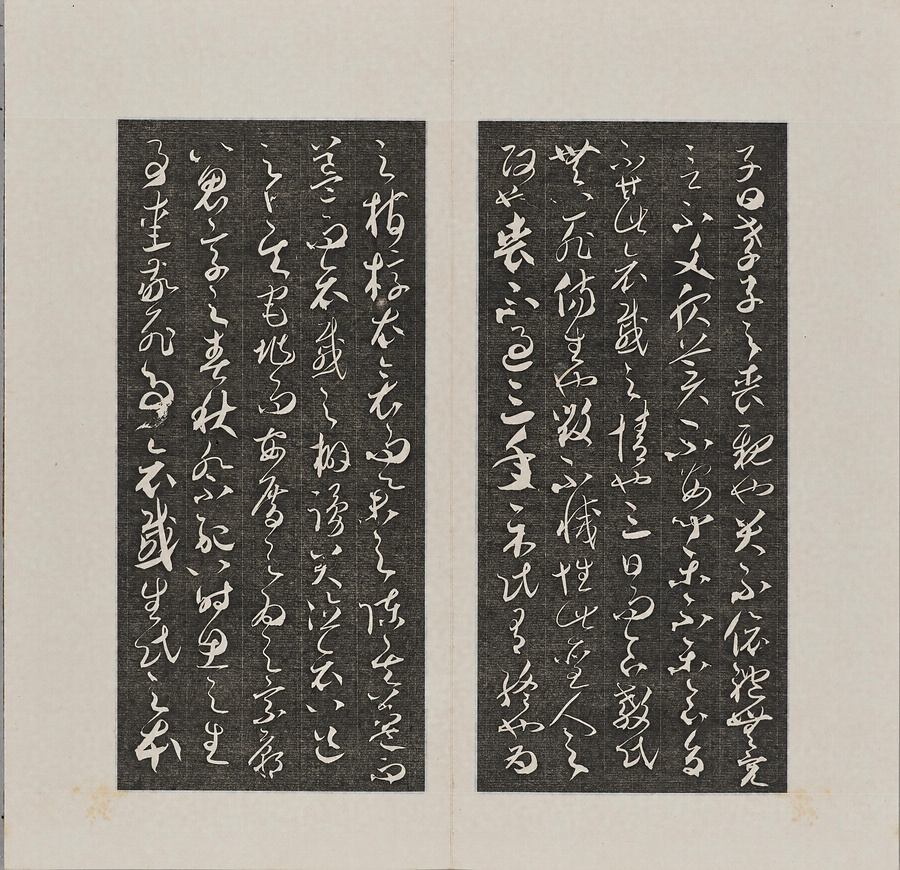 子曰孝子之喪親也哭不依禮無容
言不文服美不安聞樂不樂食旨
不甘此哀戚之情也三日而食教民
無以死傷生也毀不滅性此聖人之
政也喪不過三年示民有終也為
之棺椁衣衾而舉之陳其簠
簋而哀戚之擗踊哭泣哀以送
之卜其宅兆而安厝之為之宗廟
以鬼享之春秋祭祀以時思之生
事愛敬死事哀戚生民之本